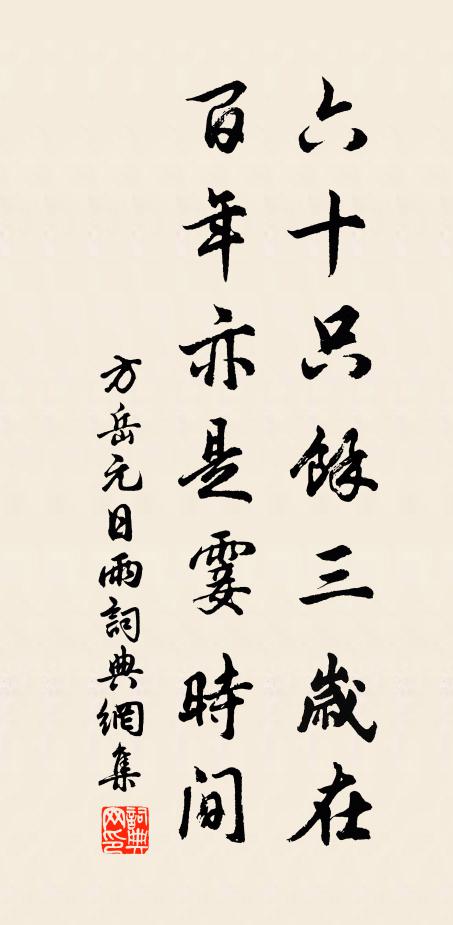 六十只餘三歲在
百年亦是霎時間
方岳元日雨詞典網集
詞典網印